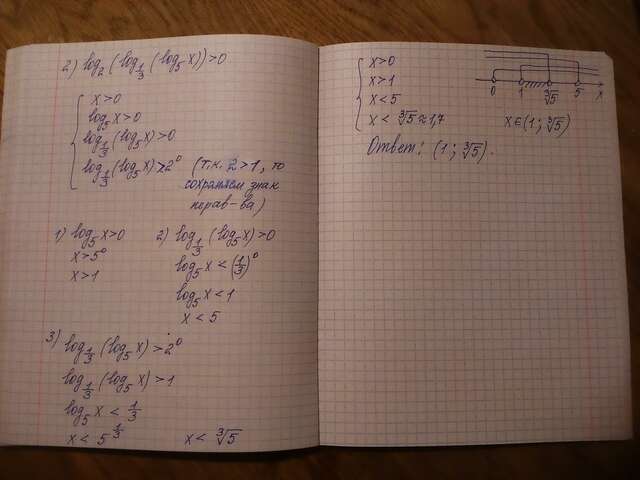 2) log₂(log_{1/3}(log₅x))>0
x>0
log₅x>0
log_{1/3}(log₅x)>0
log_{1/3}(log₅x)>2⁰ (т.к. 2>1, то
сохраняем знак
нерав-ва)
1) log₅x>0
x>5⁰
x>1
2) log_{1/3}(log₅x)>0
log₅x<(1/3)⁰
log₅x<1
x<5
3) log_{1/3}(log₅x)>2⁰
log_{1/3}(log₅x)>1
log₅x<1/3
x<5^{1/3} x<∛5
x>0
x>1
x<5
x<∛5≈1,7
0 1 ∛5 5 x
x∈(1;∛5)
Ответ: (1;∛5).